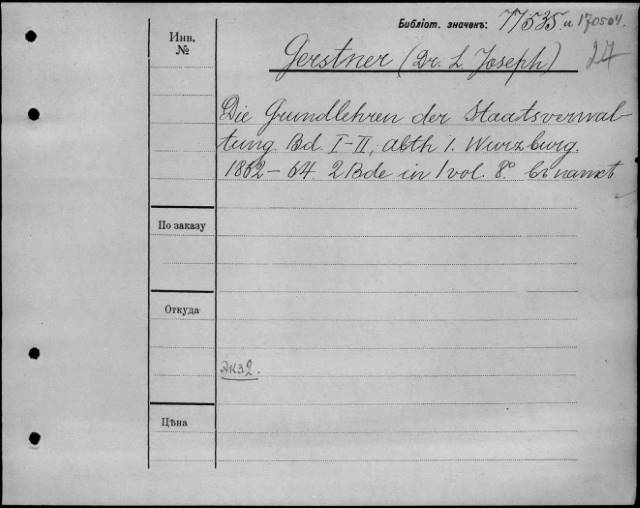 Библіот. значекъ: 77535. и 170504.
Инв.
№
Gerstner (Dr. L Joseph) 27
Die Grundlehren der Staatsverwal-
tung Bd. I-II, abth 1. Wurzburg.
1862-64. 2 Bde in 1 vol. 8°.
По заказу
Откуда
экз 2.
Цѣна